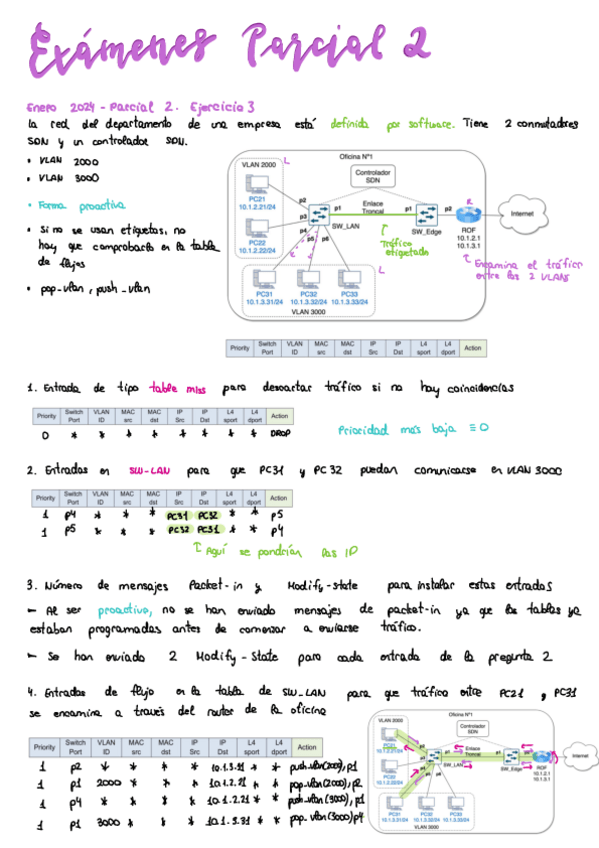 Exámenes Parcial 2
Enero 2024 - Parcial 2. Ejercicio 3
La red del departamento de una empresa está definida por software. Tiene 2 conmutadores
SDN y un controlador SDN.
• VLAN 2000
• VLAN 3000
• Forma proactiva
• Si no se usan etiquetas, no
hay que comprobarlo en la tabla
de flujos
• pop_vlan, push_vlan
Oficina Nº1
VLAN 2000
L
Controlador
SDN
PC21
10.1.2.21/24
p2
p3
p4
p5
p6
p1
Enlace
Troncal
p1
p2
R
Internet
SW_LAN
SW_Edge
ROF
10.1.2.1
10.1.3.1
PC22
10.1.2.22/24
Tráfico
etiquetado
Encamina el tráfico
entre las 2 VLANs
L
PC31
10.1.3.31/24
PC32
10.1.3.32/24
PC33
10.1.3.33/24
VLAN 3000
Priority Switch Port VLAN ID MAC src MAC dst IP Src IP Dst L4 sport L4 dport Action
1. Entrada de tipo table miss para descartar tráfico si no hay coincidencias
Priority Switch Port VLAN ID MAC src MAC dst IP Src IP Dst L4 sport L4 dport Action
0 * * * * * * * * DROP
Prioridad más baja ≡ 0
2. Entradas en SW-LAN para que PC31 y PC32 puedan comunicarse en VLAN 3000
Priority Switch Port VLAN ID MAC src MAC dst IP Src IP Dst L4 sport L4 dport Action
1 p4 * * * PC31 PC32 * * p5
1 p5 * * * PC32 PC31 * * p4
↑ Aquí se pondrían las IP
3. Número de mensajes Packet-in y Modify-state para instalar estas entradas
- Al ser proactiva, no se han enviado mensajes de packet-in ya que las tablas ya
estaban programadas antes de comenzar a enviarse tráfico.
- Se han enviado 2 Modify-State para cada entrada de la pregunta 2
4. Entradas de flujo en la tabla de SW_LAN para que tráfico entre PC21 y PC31
se encamine a través del router de la oficina
Priority Switch Port VLAN ID MAC src MAC dst IP Src IP Dst L4 sport L4 dport Action
1 p2 * * * * 10.1.3.31 * * push_vlan(2000), p1
1 p1 2000 * * * 10.1.2.21 * * pop_vlan(2000), p2
1 p4 * * * * 10.1.2.21 * * push_vlan(3000), p1
1 p1 3000 * * * 10.1.3.31 * * pop_vlan(3000) p4
Oficina Nº1
VLAN 2000
Controlador
SDN
PC21
10.1.2.21/24
Enlace
Troncal
Internet
SW_LAN
SW_Edge
ROF
10.1.2.1
10.1.3.1
PC22
10.1.2.22/24
PC31
10.1.3.31/24
PC32
10.1.3.32/24
PC33
10.1.3.33/24
VLAN 3000